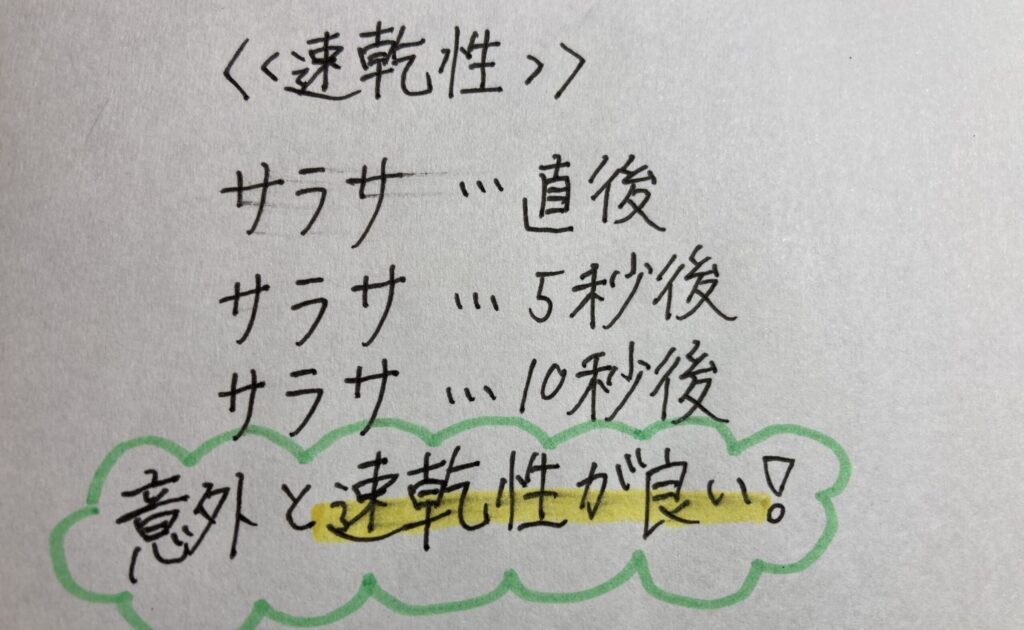 <<速乾性>>
サラサ…直後
サラサ…5秒後
サラサ…10秒後
意外と速乾性が良い!